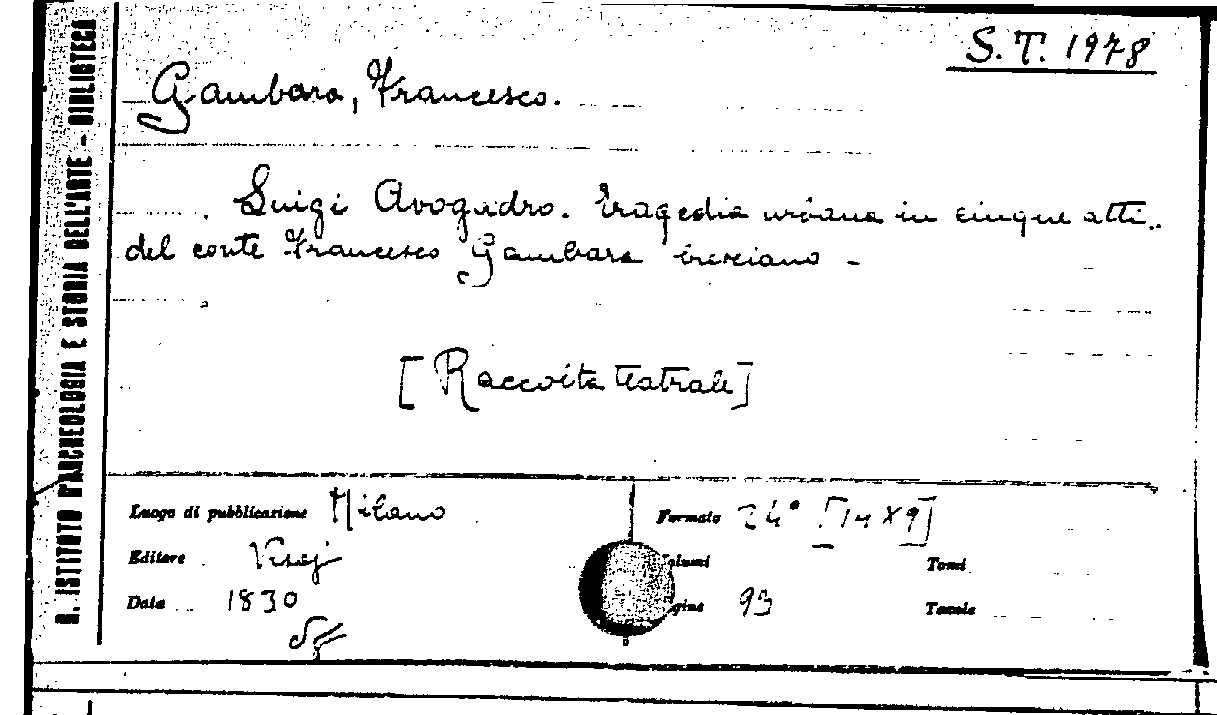 S.T. 1978
Gambara, Francesco.
Luigi Avogadro. Tragedia urbana in cinque atti..
del conte Francesco Gambara bresciano -
[Raccolta teatrale]
Luogo di pubblicazione Milano
Editore Visaj
Data 1830
Formato 24° [14X9]
olumi
Tomi
gine 93
Tavole
R. ISTITUTO D'ARCHEOLOGIA E STORIA DELL'ARTE - BIBLIOTECA